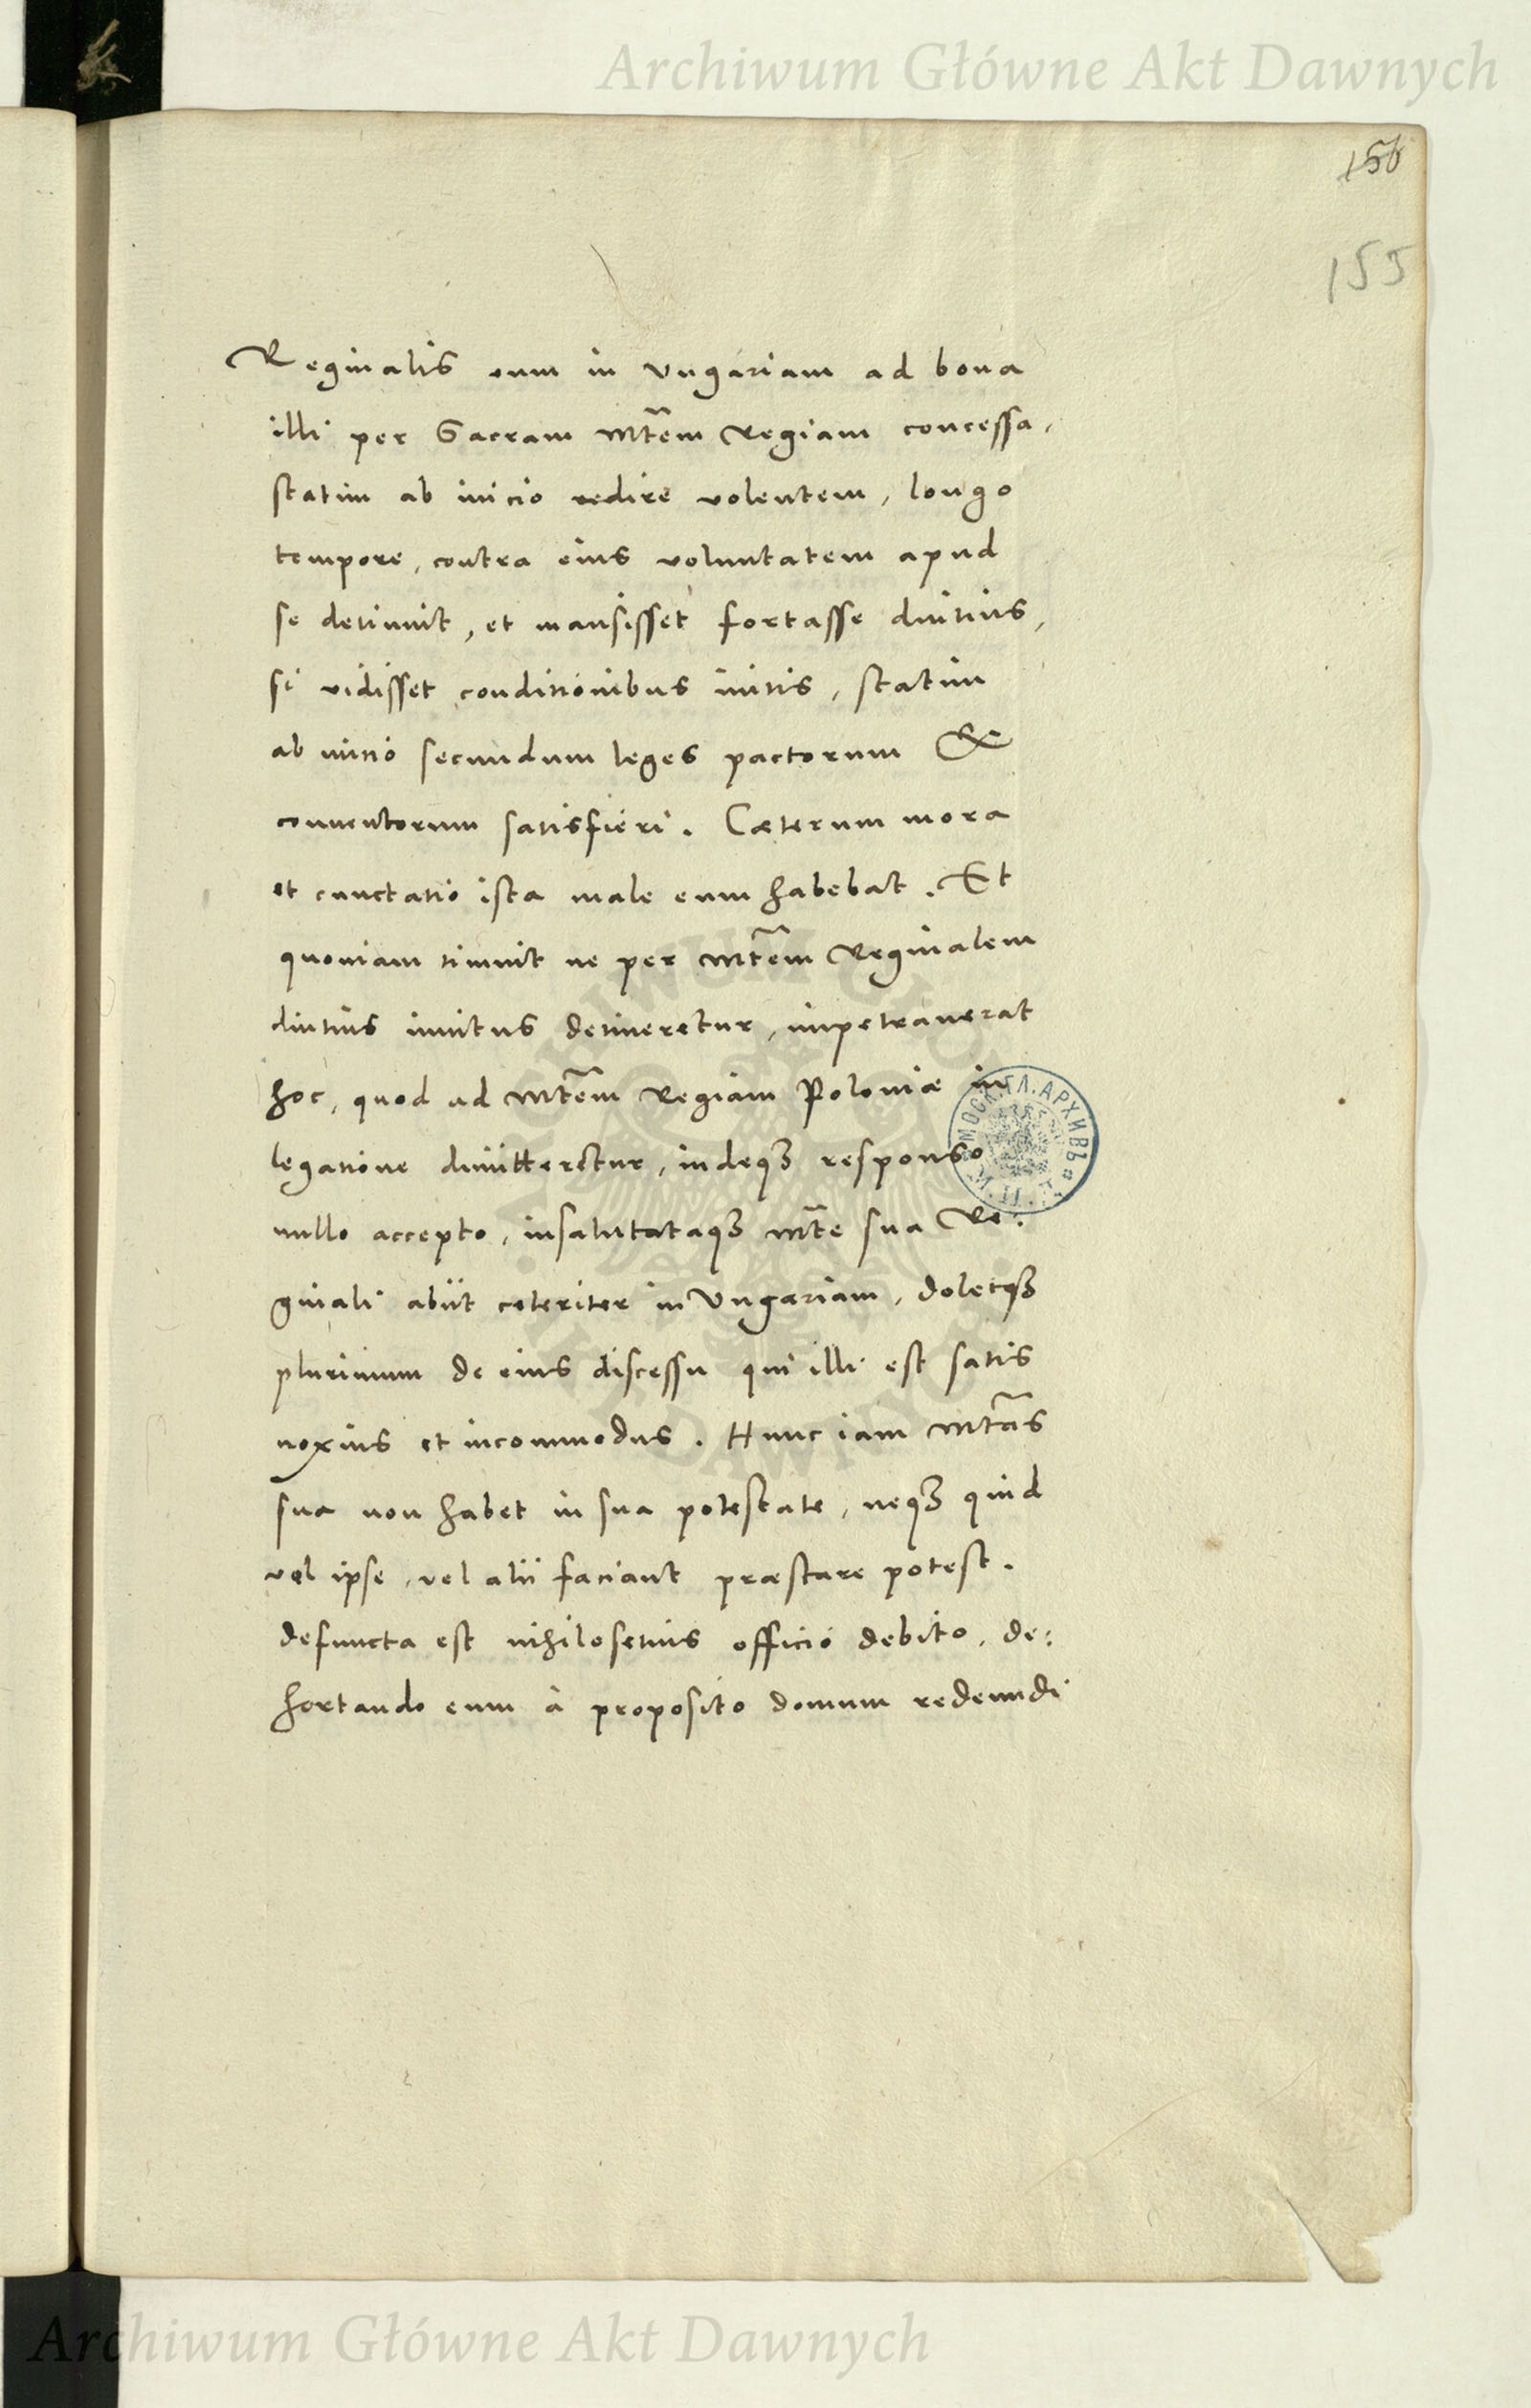 Archiwum Główne Akt Dawnych
156
155
Reginalis eum in Vngariam ad bona
illi per Sacram Mtem Regiam concessa,
statim ab inicio redire volentem, longo
tempore, contra eius voluntatem apud
se detinuit, et mansisset fortasse diutius,
si vidisset conditionibus initis, statim
ab initio secundum leges pactorum &
conuentorum satisfieri. Cæterum mora
et cunctatio ista male eum habebat. Et
quoniam timuit ne per Mtem Reginalem
diutius inuitus detineretur, impetrauerat
hoc, quod ad Mtem Regiam Poloniæ in
legatione dimitteretur, indeq3 responso
nullo accepto, insalutataq3 Mte sua Re:
ginali abiit celeriter in Vngariam, doletq3
plurimum de eius discessu qui illi est satis
noxius et incommodus. Hunc iam Mtas
sua non habet in sua potestate, neq3 quid
vel ipse, vel alii faciant præstare potest.
defuncta est nihilosetius officio debito, de:
hortando eum à proposito domum redeundi
МОСК. ГЛ. АРХИВЪ
ARCHIWUM GŁÓWNE AKT DAWNYCH
Archiwum Główne Akt Dawnych